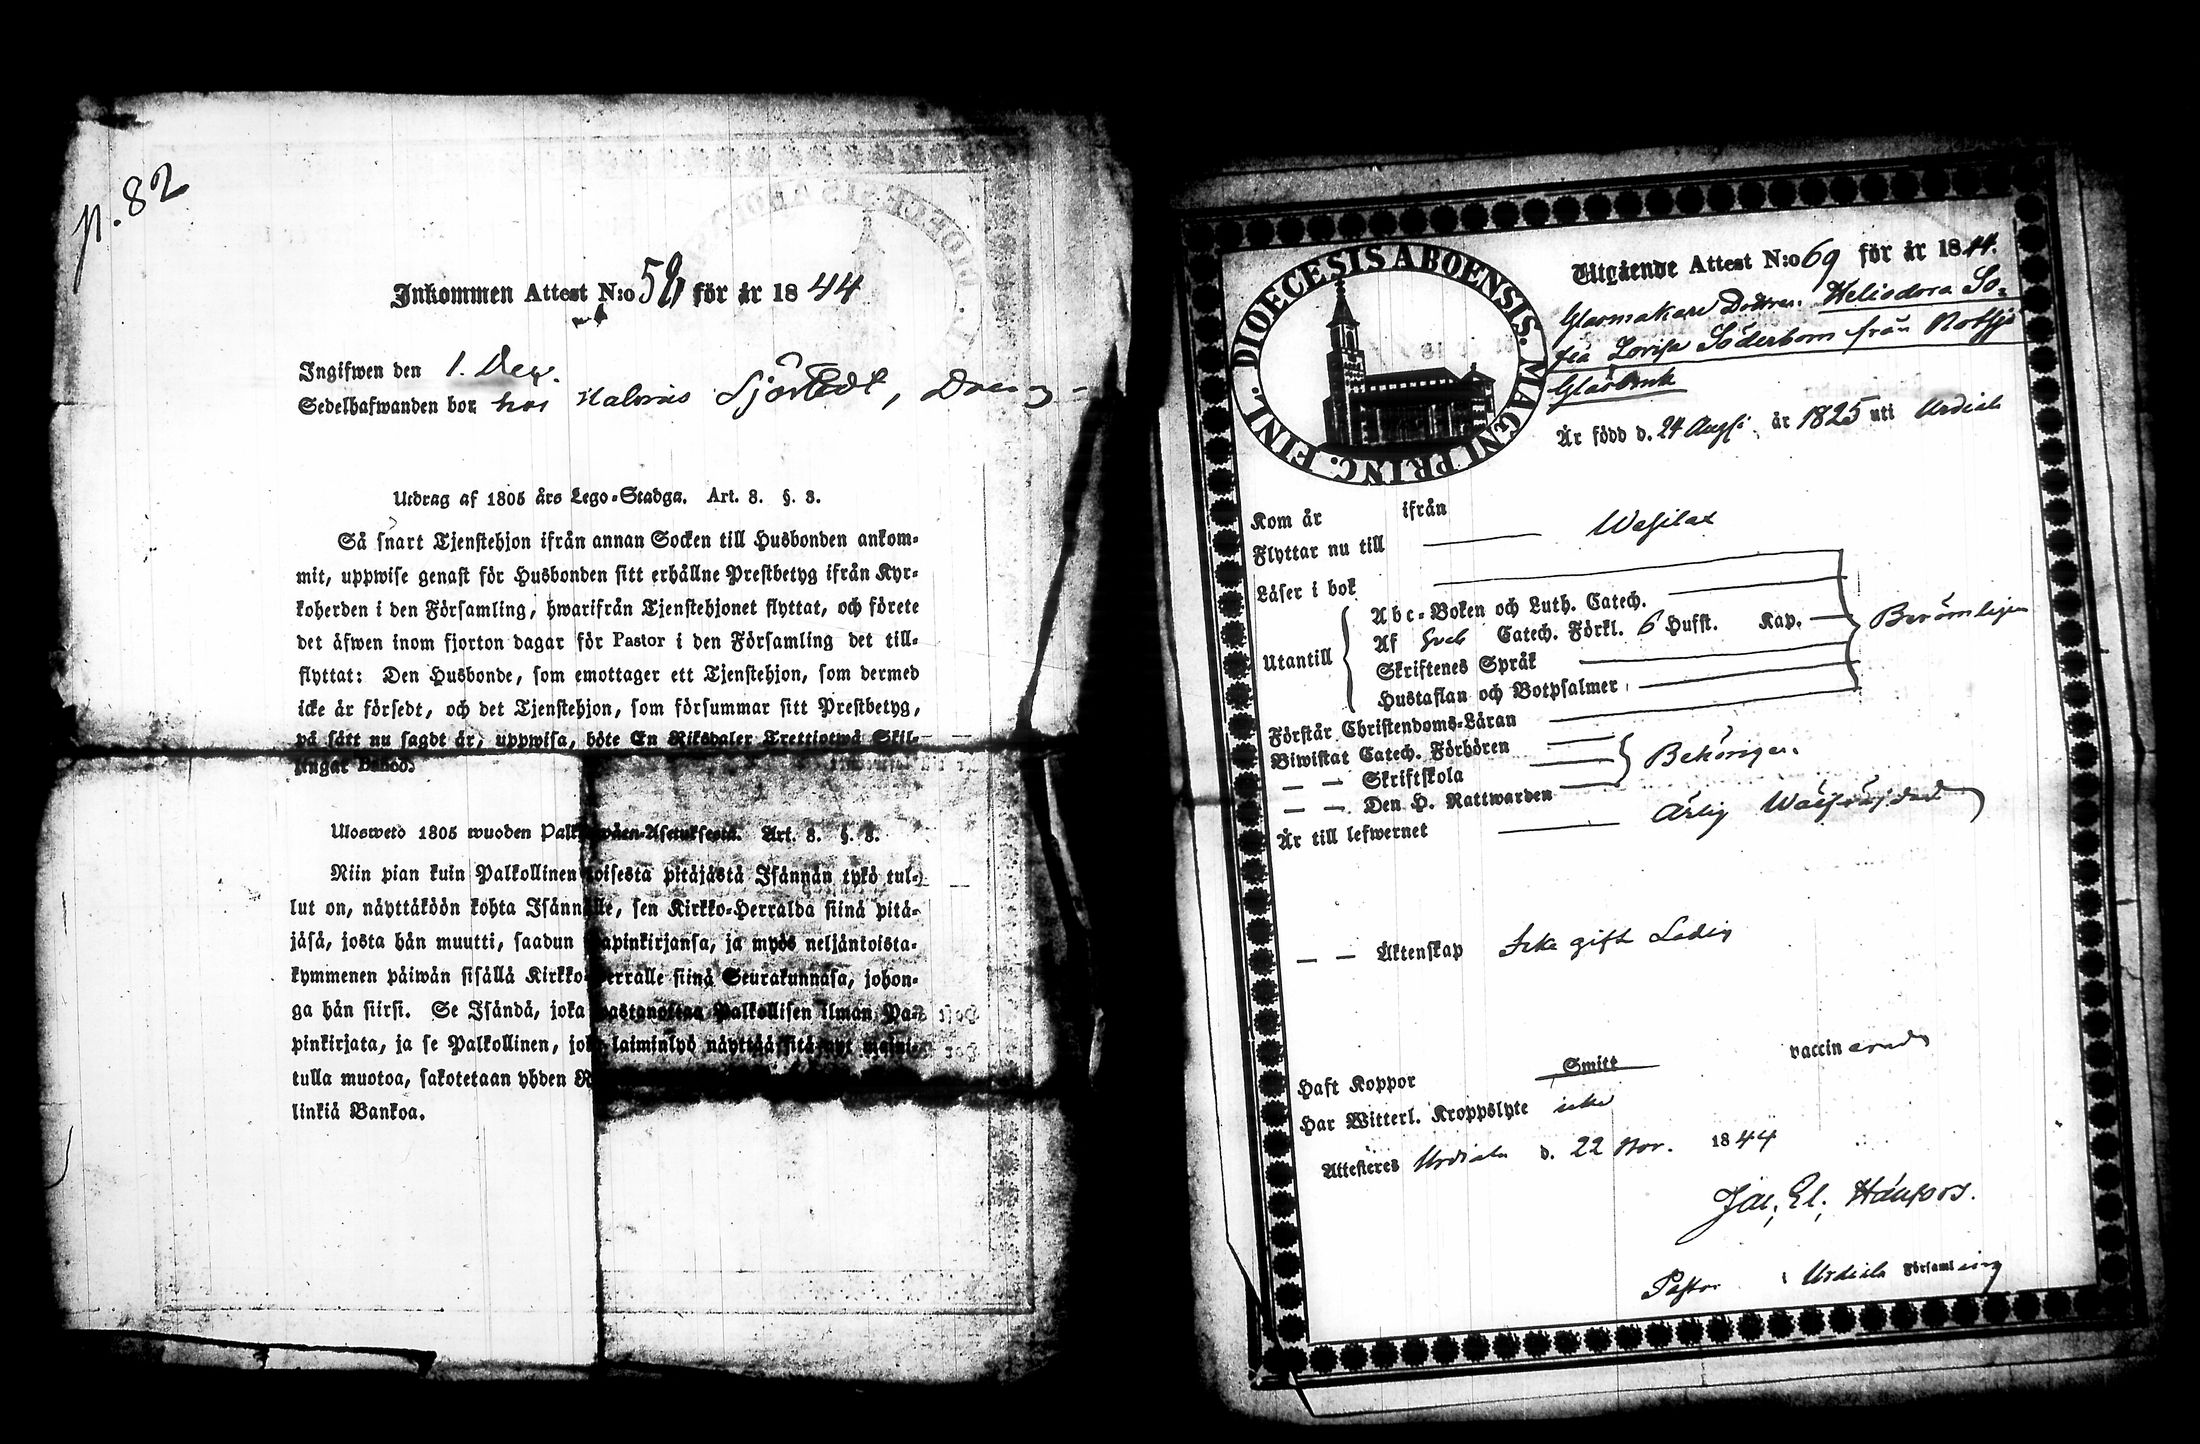 p. 82
Inkommen Attest N:o 52 för år 1844
Ingifwen den 1. Dec.
Sedelhafwanden bor hos Sjöstedt,
Utdrag af 1805 års Lego-Stadga. Art. 3. §. 3.
Så snart Tjenstehjon ifrån annan Socken till Husbonden ankom-
mit, uppwise genast för Husbonden sitt erhållne Prestbetyg ifrån Kyr-
koherden i den Församling, hwarifrån Tjenstehjonet flyttat, och förete
det äfwen inom fjorton dagar för Pastor i den Församling det till-
flyttat: Den Husbonde, som emottager ett Tjenstehjon, som dermed
icke är försedt, och det Tjenstehjon, som försummar sitt Prestbetyg,
på sätt nu sagdt är, uppwisa, böte En Riksdaler Trettiotwå Skil-
lingar Banco.
Uloswetö 1805 wuoden Art. 3. §. 3.
Niin pian kuin Palkollinen toisesta pitäjästä Isännän tykö tul-
lut on, näyttäköön kohta Isännälle, sen Kirkko-Herralda siinä pitä-
jäsä, josta hän muutti, saadun Papinkirjansa, ja myös neljäntoista-
kymmenen päiwän sisällä Kirkko-Herralle siinä Seurakunnasa, johon-
ga hän siirsi. Se Isändä, joka wastanottaa Palkollisen ilman Pa-
pinkirjata, ja se Palkollinen, joka laiminlyö näyttää sitä nyt mainit-
tulla muotoa, sakotetaan yhden
linkiä Bankoa.
DIOECESIS ABOENSIS. MAGNI PRINC. FINL.
Utgående Attest N:o 69 för år 1844.
Glasmakare Dottren. Heliodora So-
fia Lovisa Söderbom från Notsjö
Glasbruk
Är född d. 24 Augsti år 1825 uti Urdiala
Kom år ifrån
Flyttar nu till Wesilax
Läser i bok
Utantill
Abc-Boken och Luth. Catech.
Af Sveb Catech. Förkl. 6 Hufst. Kap.
Skriftenes Språk
Hustaflan och Botpsalmer
Berömligen
Förstår Christendoms-Läran
Biwistat Catech. Förhören
— — Skriftskola
— — Den H. Nattwarden
Behörigen.
Är till lefwernet Ärlig Wälfräjdad
— — Äktenskap Icke gift Ledig
Haft Koppor Smitt vaccinerad
Har Witterl. Kroppslyte icke
Attesteres Urdiala d. 22 Nov. 1844
Pastor i Urdiala Församling